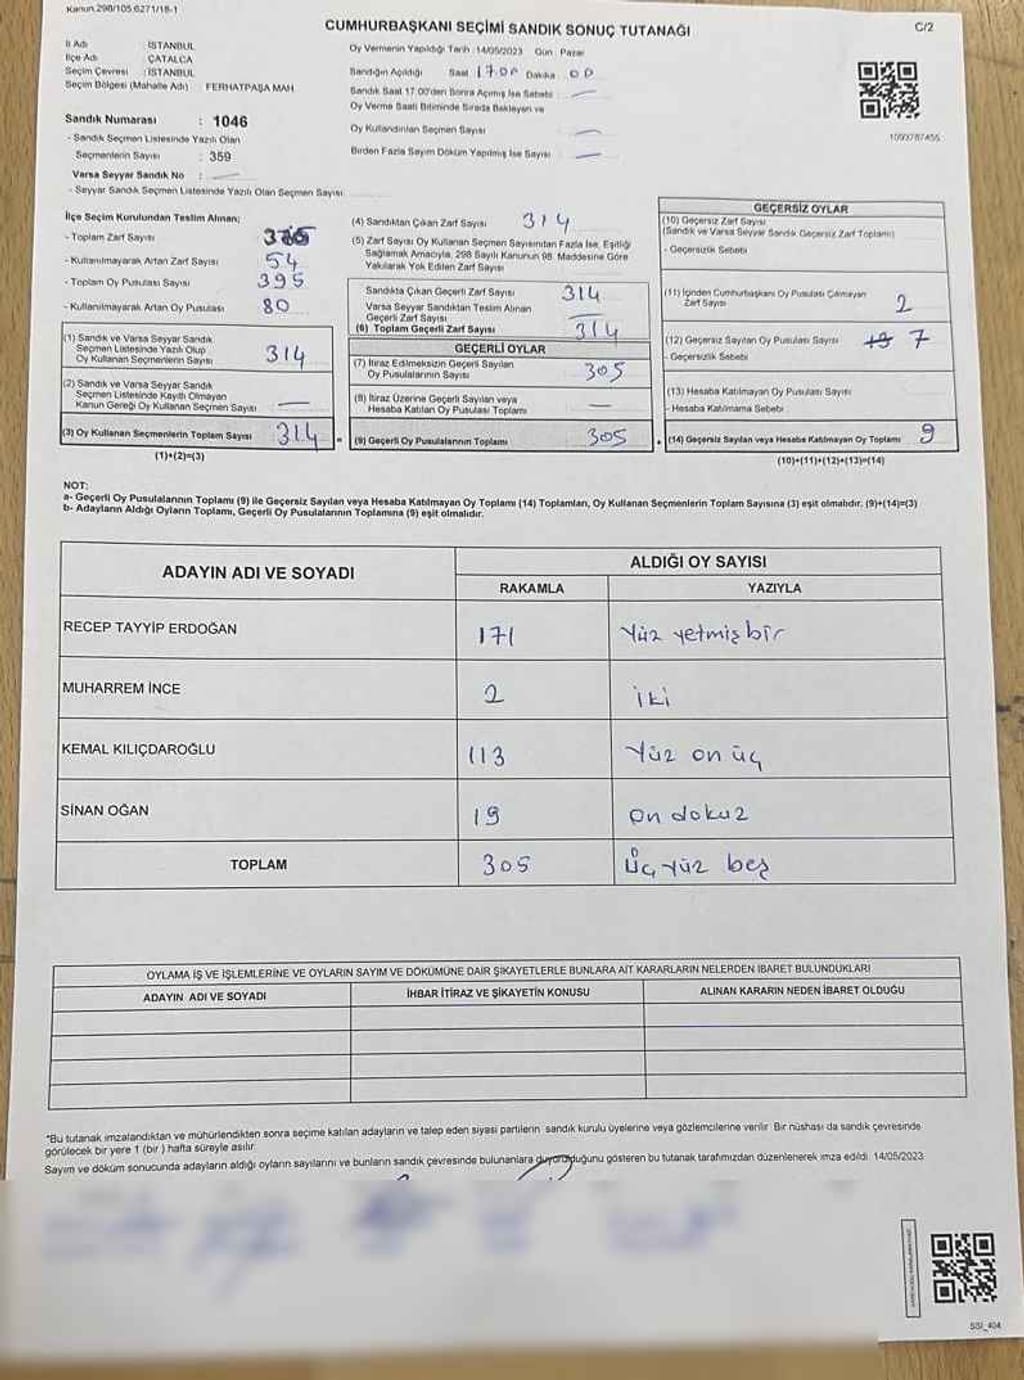 Kanun 298/105 6271/18-1
CUMHURBAŞKANI SEÇİMİ SANDIK SONUÇ TUTANAĞI
C/2
İl Adı : İSTANBUL
İlçe Adı : ÇATALCA
Seçim Çevresi : İSTANBUL
Seçim Bölgesi (Mahalle Adı) FERHATPAŞA MAH
Oy Vermenin Yapıldığı Tarih : 14/05/2023 Gün : Pazar
Sandığın Açıldığı Saat 17.00 Dakika 00
Sandık Saat 17.00'den Sonra Açılmış İse Sebebi —
Oy Verme Saati Bitiminde Sırada Bekleyen ve
Oy Kullandırılan Seçmen Sayısı —
Birden Fazla Sayım Döküm Yapılmış İse Sayısı —
Sandık Numarası : 1046
- Sandık Seçmen Listesinde Yazılı Olan
Seçmenlerin Sayısı : 359
Varsa Seyyar Sandık No : —
- Seyyar Sandık Seçmen Listesinde Yazılı Olan Seçmen Sayısı
İlçe Seçim Kurulundan Teslim Alınan;
- Toplam Zarf Sayısı
- Kullanılmayarak Artan Zarf Sayısı 54
- Toplam Oy Pusulası Sayısı 395
- Kullanılmayarak Artan Oy Pusulası 80
(1) Sandık ve Varsa Seyyar Sandık
Seçmen Listesinde Yazılı Olup
Oy Kullanan Seçmenlerin Sayısı 314
(2) Sandık ve Varsa Seyyar Sandık
Seçmen Listesinde Kayıtlı Olmayan
Kanun Gereği Oy Kullanan Seçmen Sayısı —
(3) Oy Kullanan Seçmenlerin Toplam Sayısı 314
(1)+(2)=(3)
(4) Sandıktan Çıkan Zarf Sayısı 314
(5) Zarf Sayısı Oy Kullanan Seçmen Sayısından Fazla İse, Eşitliği
Sağlamak Amacıyla, 298 Sayılı Kanunun 98. Maddesine Göre
Yakılarak Yok Edilen Zarf Sayısı
Sandıkta Çıkan Geçerli Zarf Sayısı 314
Varsa Seyyar Sandıktan Teslim Alınan
Geçerli Zarf Sayısı —
(6) Toplam Geçerli Zarf Sayısı 314
GEÇERLİ OYLAR
(7) İtiraz Edilmeksizin Geçerli Sayılan
Oy Pusulalarının Sayısı 305
(8) İtiraz Üzerine Geçerli Sayılan veya
Hesaba Katılan Oy Pusulası Toplamı —
(9) Geçerli Oy Pusulalarının Toplamı 305
GEÇERSİZ OYLAR
(10) Geçersiz Zarf Sayısı
(Sandık ve Varsa Seyyar Sandık Geçersiz Zarf Toplamı)
- Geçersizlik Sebebi
(11) İçinden Cumhurbaşkanı Oy Pusulası Çıkmayan
Zarf Sayısı 2
(12) Geçersiz Sayılan Oy Pusulası Sayısı 7
- Geçersizlik Sebebi
(13) Hesaba Katılmayan Oy Pusulası Sayısı
- Hesaba Katılmama Sebebi
(14) Geçersiz Sayılan veya Hesaba Katılmayan Oy Toplamı 9
(10)+(11)+(12)+(13)=(14)
NOT:
a- Geçerli Oy Pusulalarının Toplamı (9) ile Geçersiz Sayılan veya Hesaba Katılmayan Oy Toplamı (14) Toplamları, Oy Kullanan Seçmenlerin Toplam Sayısına (3) eşit olmalıdır. (9)+(14)=(3)
b- Adayların Aldığı Oyların Toplamı, Geçerli Oy Pusulalarının Toplamına (9) eşit olmalıdır.
ADAYIN ADI VE SOYADI
ALDIĞI OY SAYISI
RAKAMLA YAZIYLA
RECEP TAYYİP ERDOĞAN 171 Yüz yetmiş bir
MUHARREM İNCE 2 iki
KEMAL KILIÇDAROĞLU 113 Yüz on üç
SİNAN OĞAN 19 on dokuz
TOPLAM 305 Üç yüz beş
OYLAMA İŞ VE İŞLEMLERİNE VE OYLARIN SAYIM VE DÖKÜMÜNE DAİR ŞİKAYETLERLE BUNLARA AİT KARARLARIN NELERDEN İBARET BULUNDUKLARI
ADAYIN ADI VE SOYADI
İHBAR İTİRAZ VE ŞİKAYETİN KONUSU
ALINAN KARARIN NEDEN İBARET OLDUĞU
*Bu tutanak imzalandıktan ve mühürlendikten sonra seçime katılan adayların ve talep eden siyasi partilerin sandık kurulu üyelerine veya gözlemcilerine verilir. Bir nüshası da sandık çevresinde
görülecek bir yere 1 (bir ) hafta süreyle asılır.
Sayım ve döküm sonucunda adayların aldığı oyların sayılarını ve bunların sandık çevresinde bulunanlara duyurulduğunu gösteren bu tutanak tarafımızdan düzenlenerek imza edildi. 14/05/2023
SSI_404